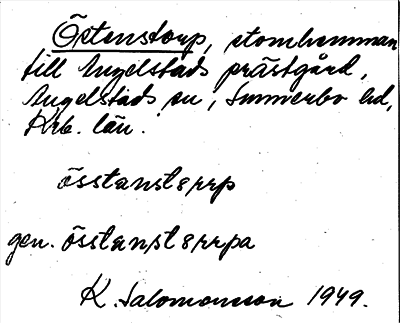 Östenstorp, stomhemman
till Angelstads prästgård,
Angelstads sn, Sunnerbo hd,
Krb. län.
össtanstɛrrp
gen. össtanstɛrrpa
K. Salomonsson 1949.